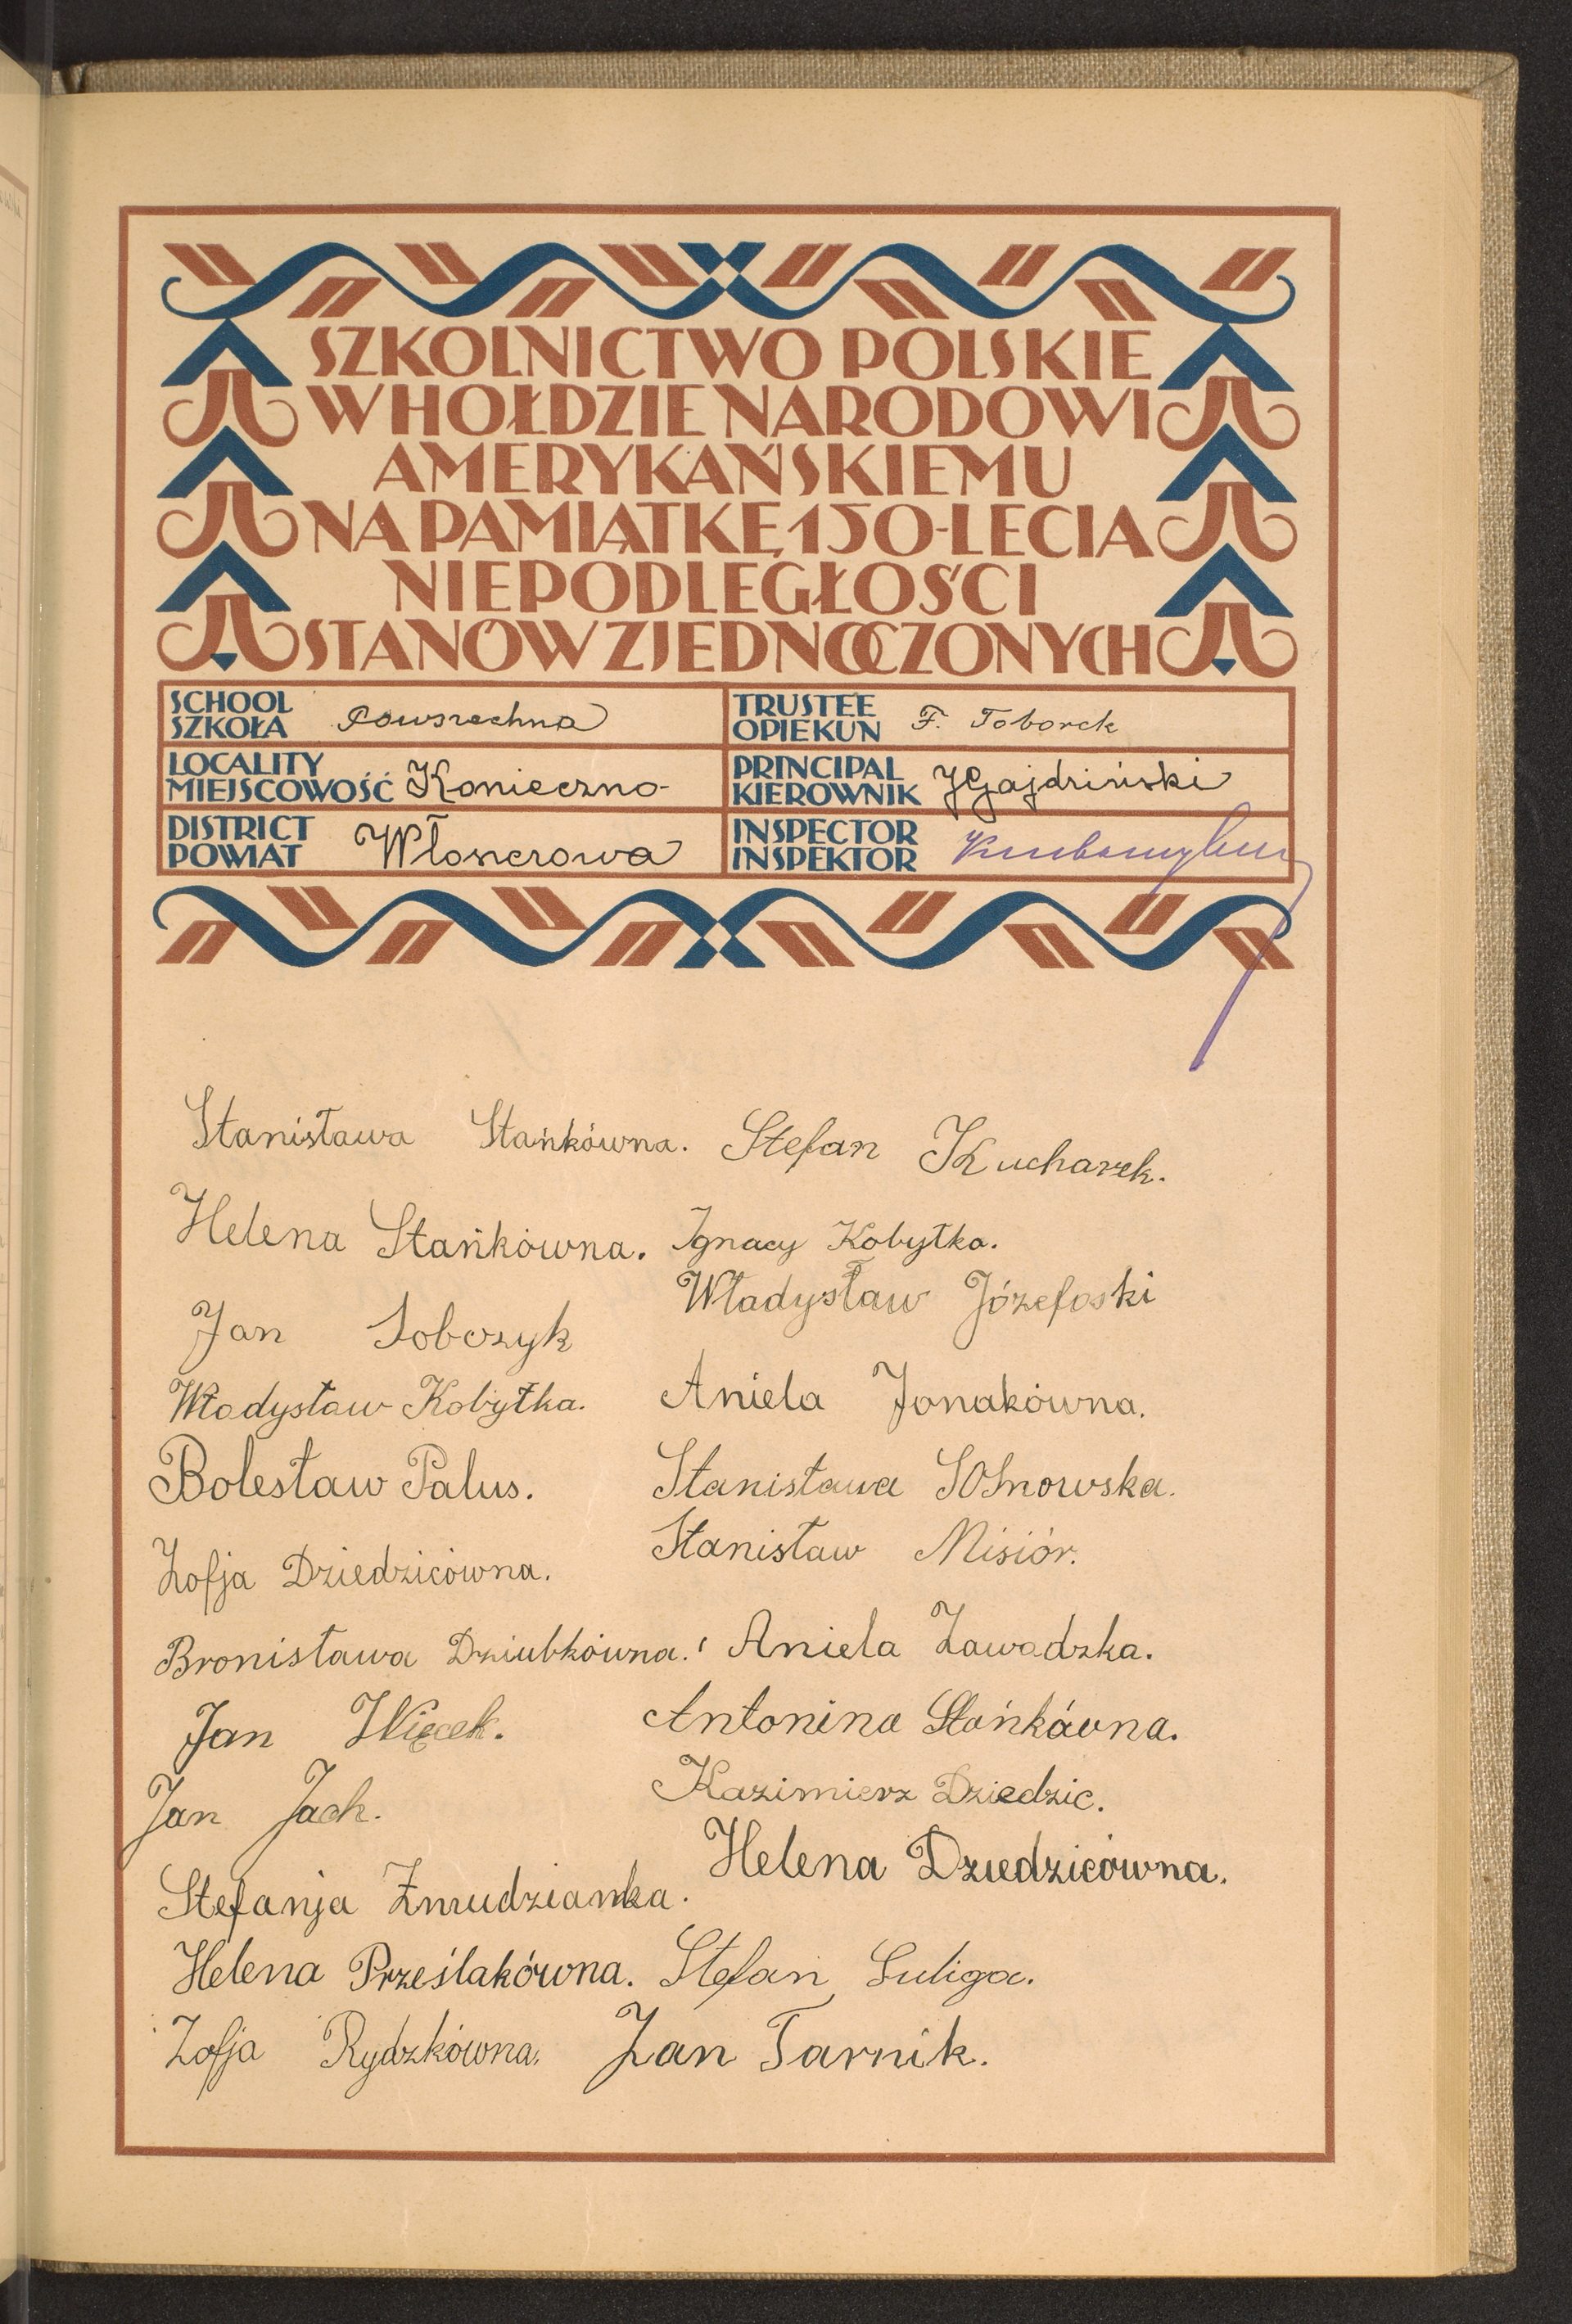 SZKOLNICTWO POLSKIE
W HOŁDZIE NARODOWI
AMERYKAŃSKIEMU
NA PAMIĄTKĘ 150-LECIA
NIEPODLEGŁOŚCI
STANÓW ZJEDNOCZONYCH
SCHOOL
SZKOŁA Powszechna
TRUSTEE
OPIEKUN F. Toborek
LOCALITY
MIEJSCOWOŚĆ Konieczno-
PRINCIPAL
KIEROWNIK JGajdziński
DISTRICT
POWIAT Włoszczowa
INSPECTOR
INSPEKTOR
Stanisława Stańkówna. Stefan Kucharek.
Helena Stańkówna. Ignacy Kobyłka.
Władysław Józefoski
Jan Sobczyk
Władysław Kobyłka. Aniela Jonakówna.
Bolesław Palus. Stanisława SOsnowska.
Stanisław Misiór.
Zofja Dziedzicówna.
Bronisława Dziubkówna. Aniela Zawadzka.
Jan Więcek. Antonina Stańkówna.
Kazimierz Dziedzic.
Jan Jach.
Helena Dziedzicówna.
Stefanja Żmudzianka.
Helena Prześlakówna. Stefan Suliga.
Zofja Rydzkówna. Jan Tarnik.